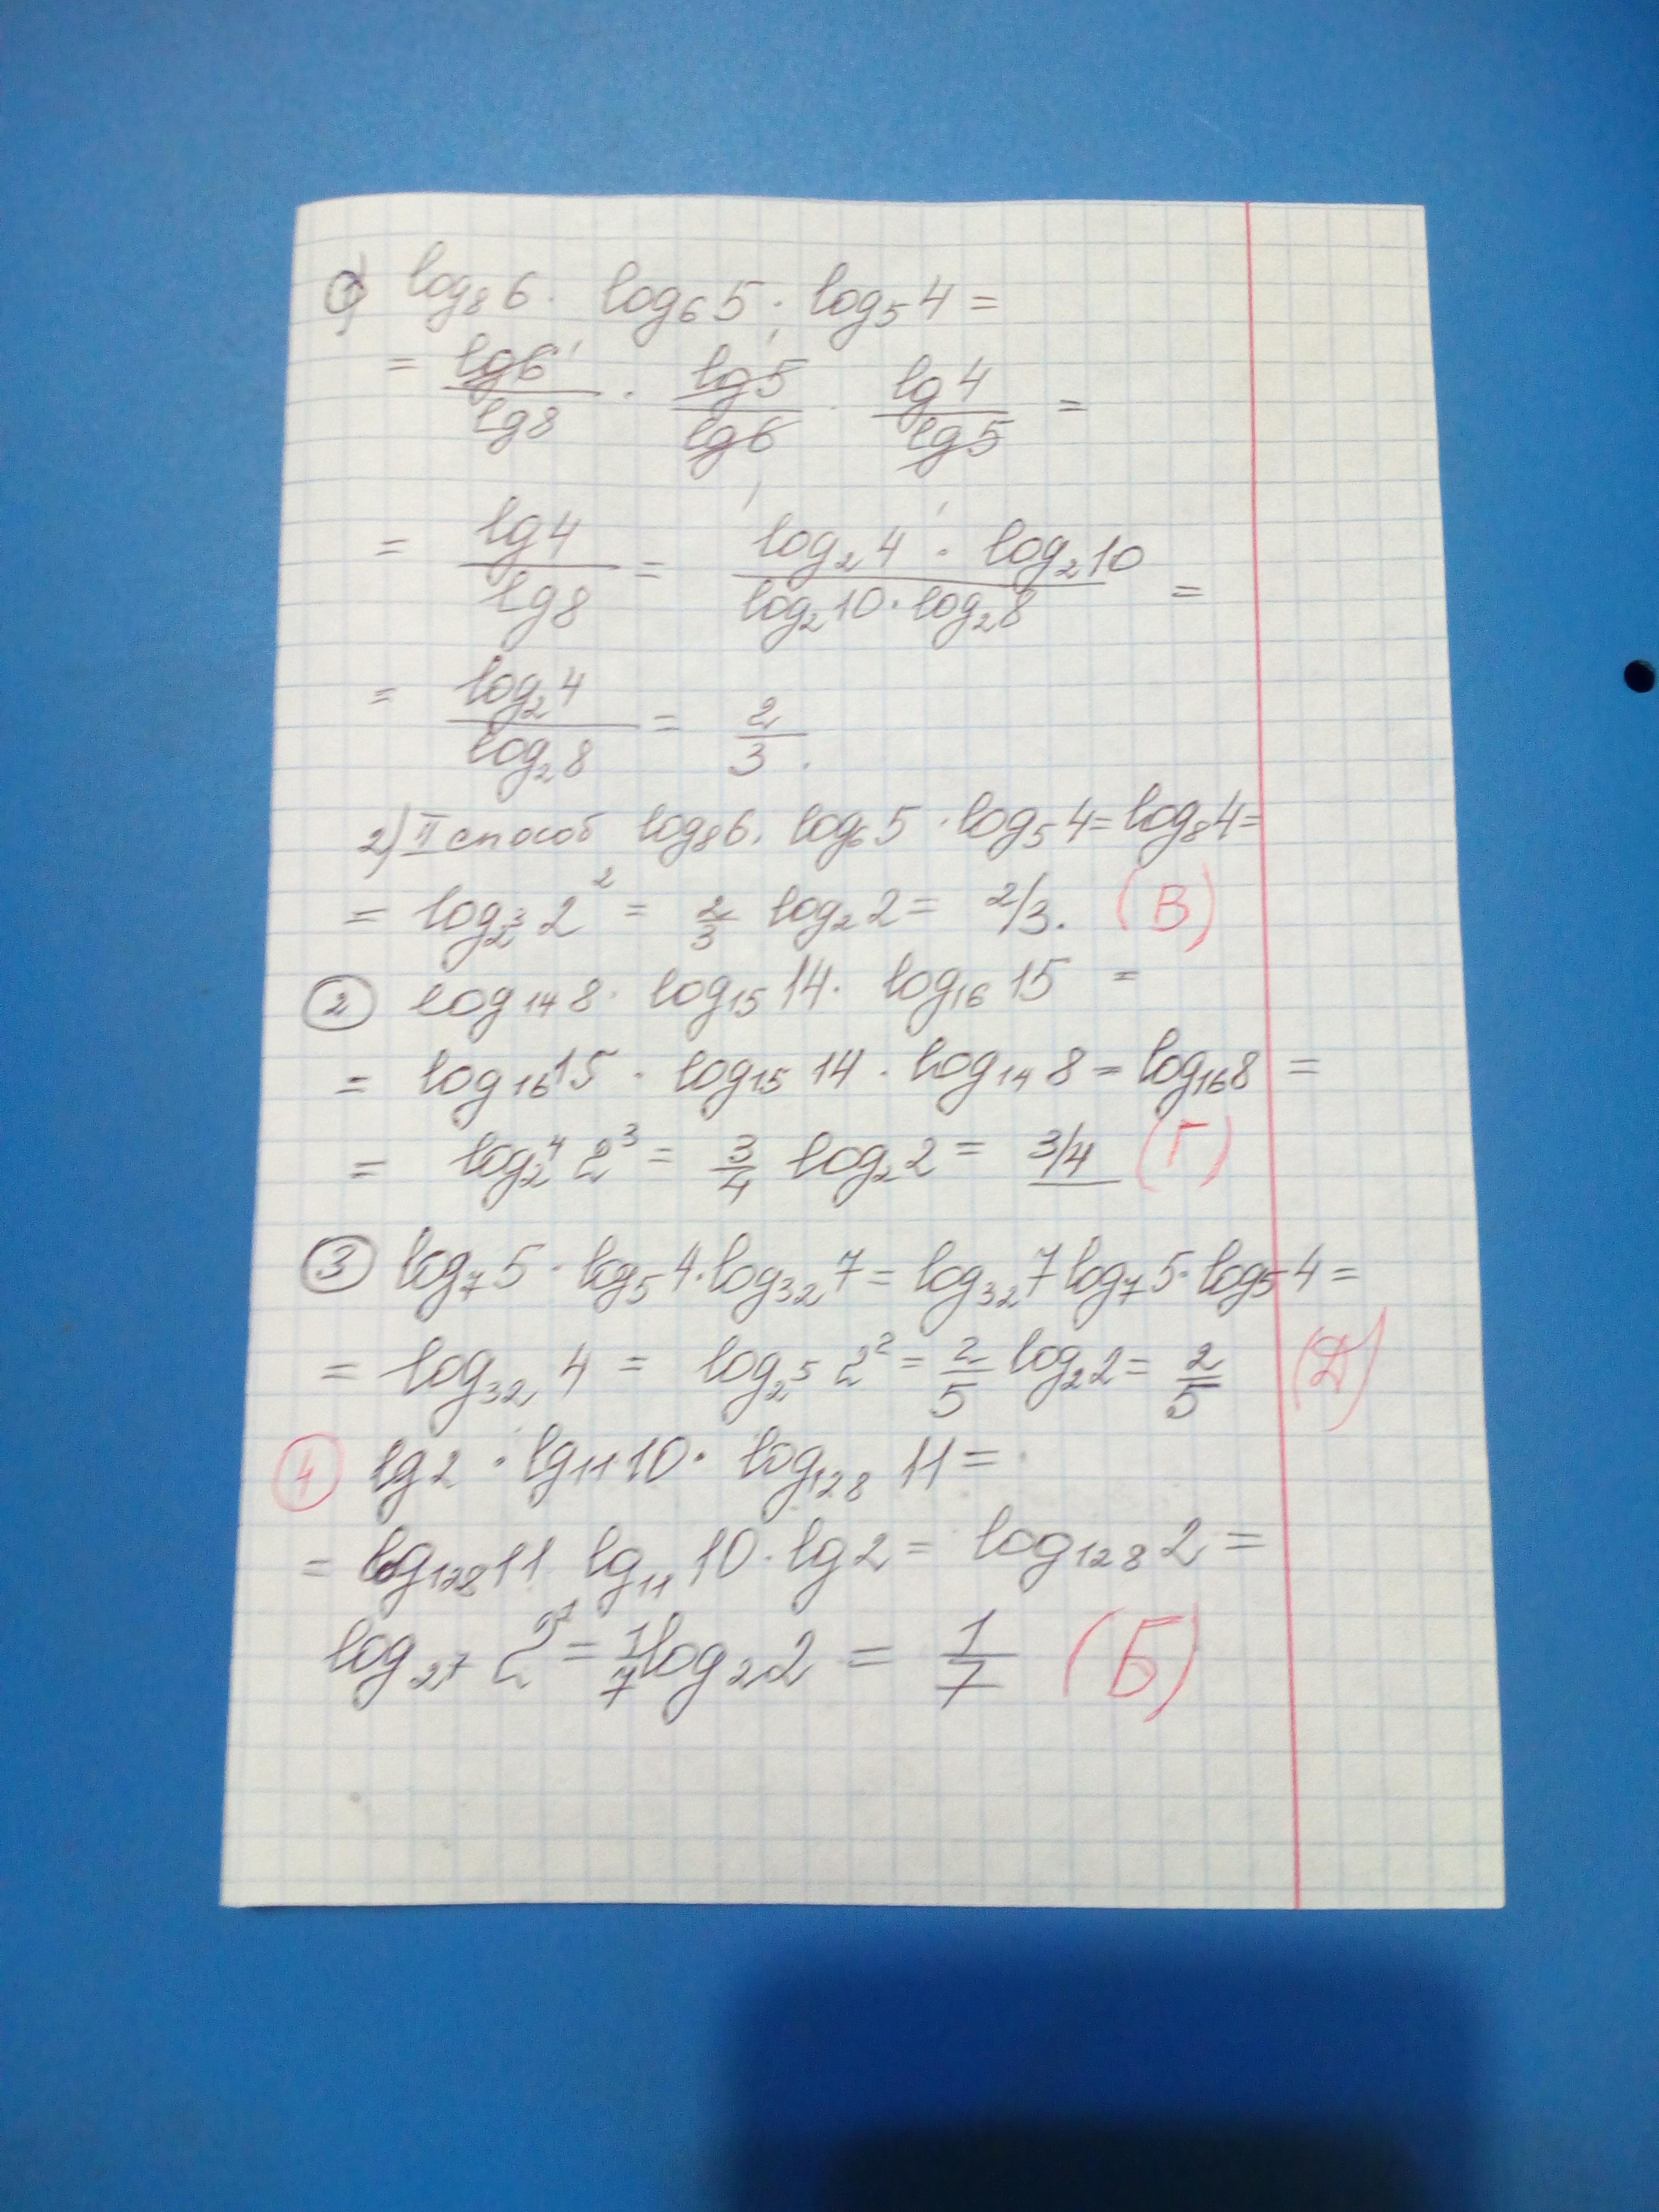 1) log₈6 · log₆5 · log₅4 =
= lg6/lg8 · lg5/lg6 · lg4/lg5 =
= lg4/lg8 = log₂4 · log₂10 / log₂10 · log₂8 =
= log₂4/log₂8 = 2/3.
2) II способ log₈6 · log₆5 · log₅4 = log₈4 =
= log₂³ 2² = 2/3 log₂2 = 2/3. (В)
2 log₁₄8 · log₁₅14 · log₁₆15 =
= log₁₆15 · log₁₅14 · log₁₄8 = log₁₆8 =
= log₂⁴ 2³ = 3/4 log₂2 = 3/4 (Г)
3 log₇5 · log₅4 · log₃₂7 = log₃₂7 log₇5 · log₅4 =
= log₃₂4 = log₂⁵ 2² = 2/5 log₂2 = 2/5 (Д)
4 lg2 · lg₁₁10 · log₁₂₈11 =
= log₁₂₈11 lg₁₁10 · lg2 = log₁₂₈2 =
log₂⁷ 2 = 1/7 log₂2 = 1/7 (Б)